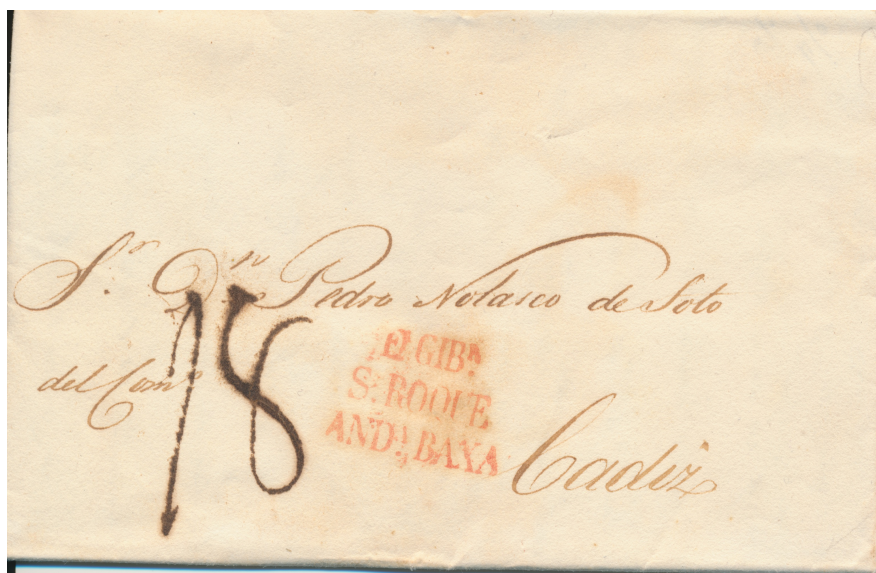 S.ᵒʳ D.ⁿ Pedro Nolasco de Soto
del Com.º
18
E GIB.ᴬ
S. ROQUE
AND.ᴬ BAXA
Cadiz